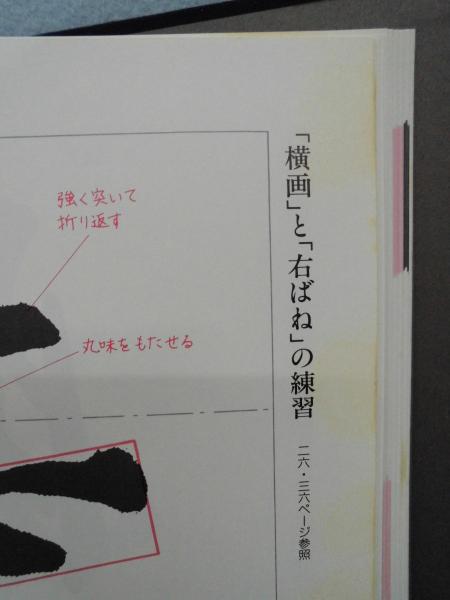 「横画」と「右ばね」の練習
二六・三六ページ参照
強く突いて
折り返す
丸味をもたせる